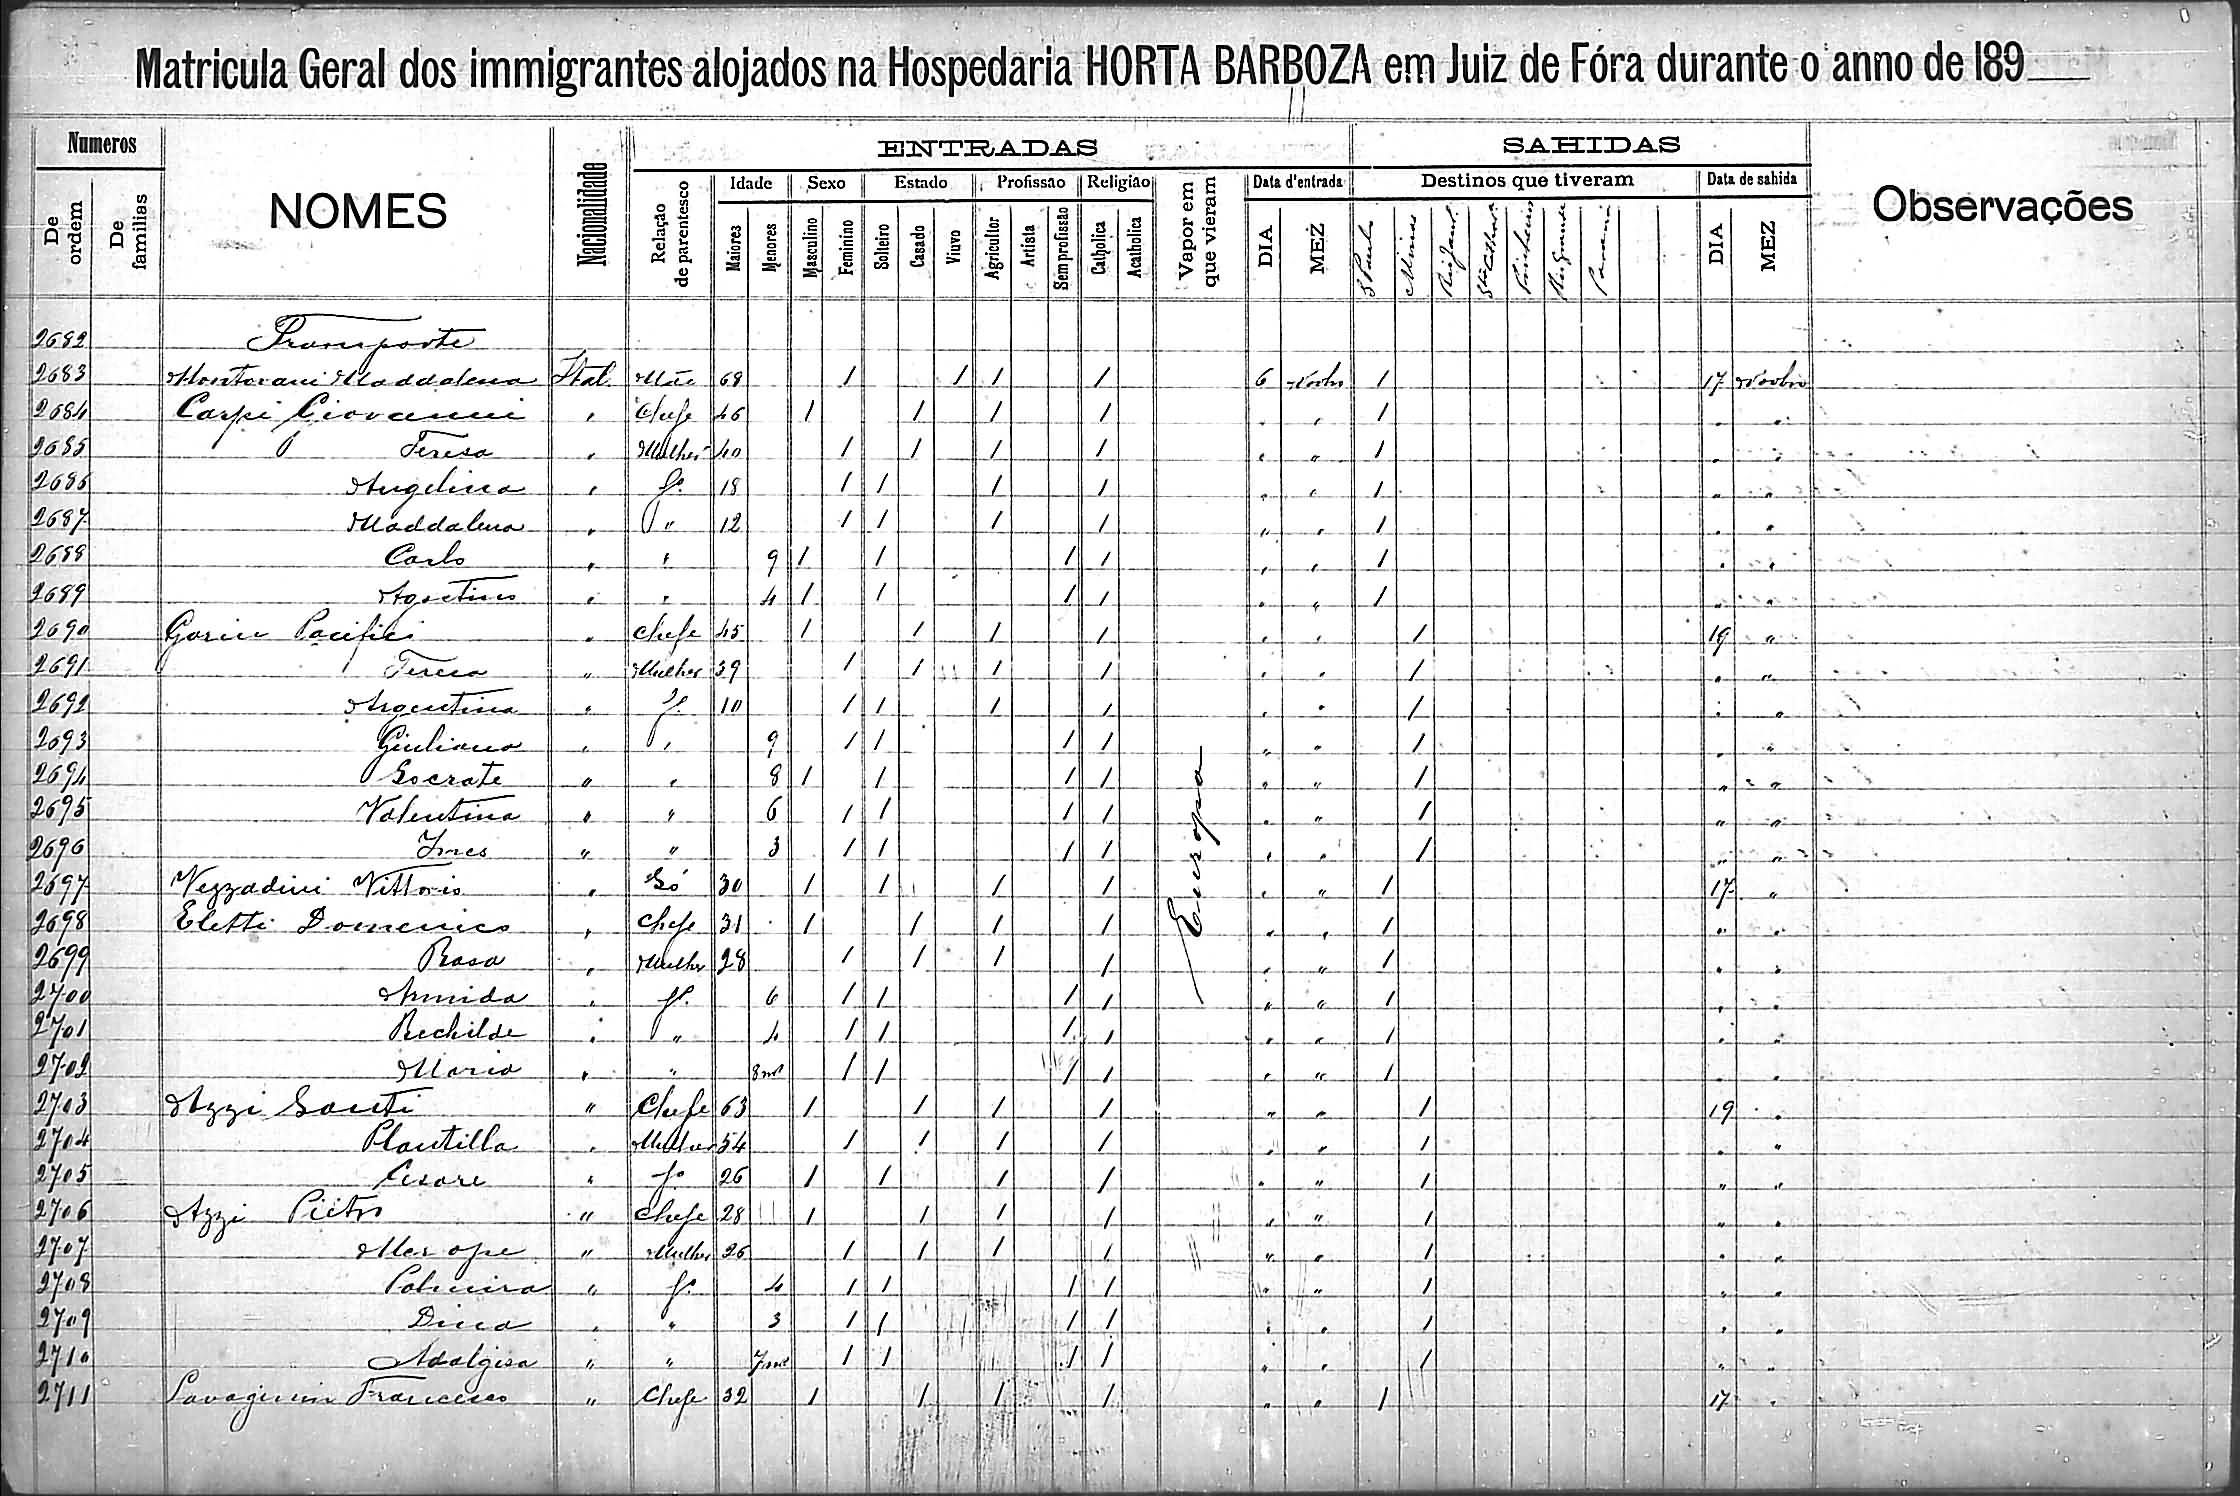 Matricula Geral dos immigrantes alojados na Hospedaria HORTA BARBOZA em Juiz de Fóra durante o anno de 189
Numeros NOMES Nacionalidade ENTRADAS SAHIDAS Observações
De ordem De familias Relação de parentesco Idade Sexo Estado Profissão Religião Vapor em que vieram Data d'entrada Destinos que tiveram Data de sahida
Maiores Menores Masculino Feminino Solteiro Casado Viuvo Agricultor Artista Sem profissão Catholica Acatholica DIA MEZ S Paulo Minas DIA MEZ
2682 Transporte
2683 Montovani Maddalena Ital. Mãe 68 1 1 1 1 6 Novbr 1 17 Novbro
2684 Carpi Giovanni " Chefe 46 1 1 1 1 " " 1 " "
2685 Teresa " Mulher 40 1 1 1 1 " " 1 " "
2686 Angelina " fº 18 1 1 1 1 " " 1 " "
2687 Maddalena " " 12 1 1 1 1 " " 1 " "
2688 Carlo " " 9 1 1 1 1 " " 1 " "
2689 Agostino " " 4 1 1 1 1 " " 1 " "
2690 Gorin Pacifici " Chefe 45 1 1 1 1 " " 1 19 "
2691 Teresa " Mulher 39 1 1 1 1 " " 1 " "
2692 Argentina " f. 10 1 1 1 1 " " 1 " "
2693 Giuliana " " 9 1 1 1 1 " " 1 " "
2694 Socrate " " 8 1 1 1 1 " " 1 " "
2695 Valentina " " 6 1 1 1 1 " " 1 " "
2696 Ines " " 3 1 1 1 1 " " 1 " "
Europa
2697 Vezzadini Vittorio " Só 30 1 1 1 1 " " 1 17 "
2698 Eletti Domenico " Chefe 31 1 1 1 1 " " 1 " "
2699 Rosa " Mulher 28 1 1 1 1 " " 1 " "
2700 Armida " fº. 6 1 1 1 1 " " 1 " "
2701 Rechilde " " 4 1 1 1 1 " " 1 " "
2702 Maria " " 8 ms 1 1 1 1 " " 1 " "
2703 Azzi Santi " Chefe 63 1 1 1 1 " " 1 19 "
2704 Plautilla " Mulher 54 1 1 1 1 " " 1 " "
2705 Cesare " fº 26 1 1 1 1 " " 1 " "
2706 Azzi Pietro " Chefe 28 1 1 1 1 " " 1 " "
2707 Merope " Mulher 26 1 1 1 1 " " 1 " "
2708 Palmira " fº. 4 1 1 1 1 " " 1 " "
2709 Dina " " 3 1 1 1 1 " " 1 " "
2710 Adalgisa " " 7 ms 1 1 1 1 " " 1 " "
2711 Francesco " Chefe 32 1 1 1 1 " " 1 17 "